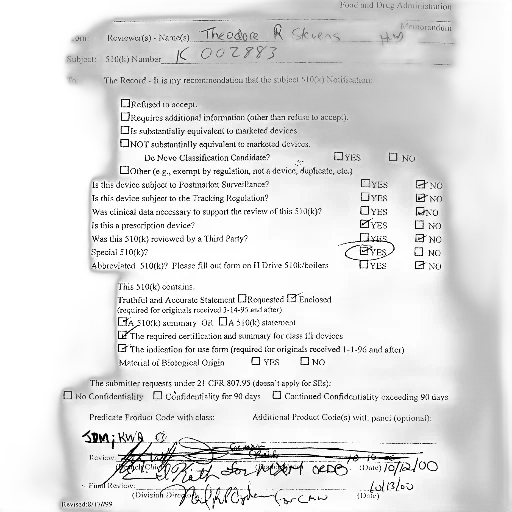 Food and Drug Administration
Memorandum
From: Reviewer(s) - Name(s) Theodore R Stevens
Subject: 510(k) Number K 002883
To: The Record - It is my recommendation that the subject 510(k) Notification:
☐Refused to accept.
☐Requires additional information (other than refuse to accept).
☐Is substantially equivalent to marketed devices.
☐NOT substantially equivalent to marketed devices.
De Novo Classification Candidate? ☐YES ☐ NO
☐Other (e.g., exempt by regulation, not a device, duplicate, etc.)
Is this device subject to Postmarket Surveillance? ☐YES ☑ NO
Is this device subject to the Tracking Regulation? ☐YES ☑ NO
Was clinical data necessary to support the review of this 510(k)? ☐YES ☑NO
Is this a prescription device? ☑YES ☐ NO
Was this 510(k) reviewed by a Third Party? ☐YES ☑ NO
Special 510(k)? ☑YES ☐ NO
Abbreviated 510(k)? Please fill out form on H Drive 510k/boilers ☐YES ☑ NO
This 510(k) contains:
Truthful and Accurate Statement ☐Requested ☑ Enclosed
(required for originals received 3-14-95 and after)
☑A 510(k) summary OR ☐A 510(k) statement
☑ The required certification and summary for class III devices
☑ The indication for use form (required for originals received 1-1-96 and after)
Material of Biological Origin ☐ YES ☐ NO
The submitter requests under 21 CFR 807.95 (doesn't apply for SEs):
☐ No Confidentiality ☐ Confidentiality for 90 days ☐ Continued Confidentiality exceeding 90 days
Predicate Product Code with class: Additional Product Code(s) with panel (optional):
JDM; KWQ
Review: (Date) 10/12/00
Final Review: 10/13/00
(Division Director) (Date)
Revised:8/17/99